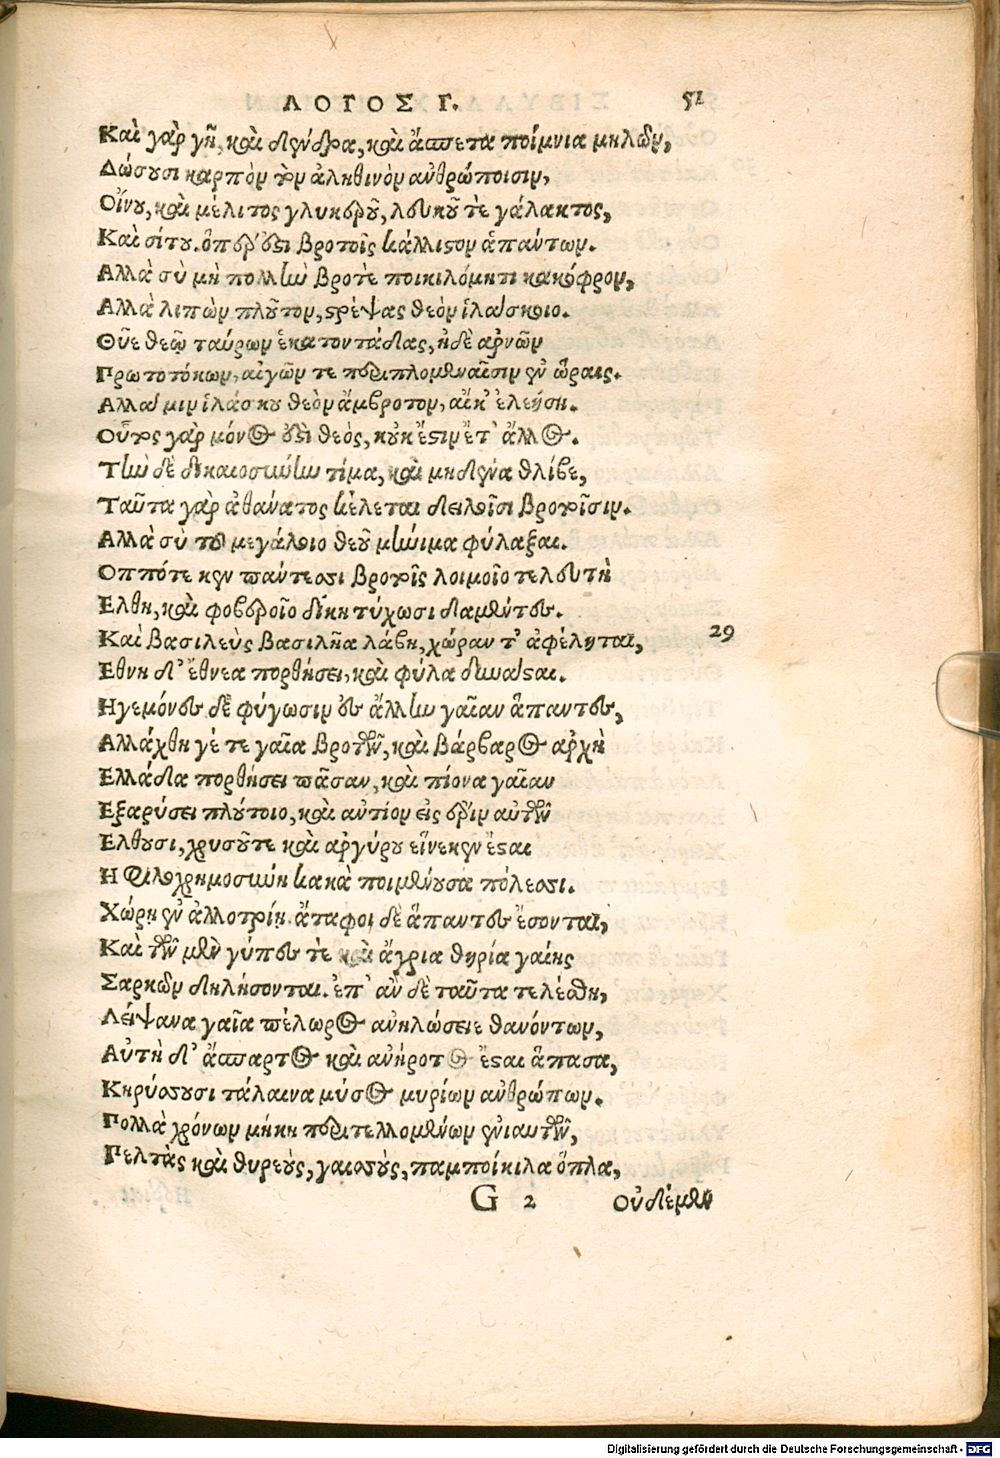 ΛΟΓΟΣ Γ. 51
Καὶ γὰρ γῆ, καὶ δένδρα, καὶ ἄσπετα ποίμνια μήλων,
Δώσουσι καρπὸν τὸν ἀληθινὸν ἀνθρώποισιν,
Οἴνου, καὶ μέλιτος γλυκεροῦ, λευκοῦ τὲ γάλακτος,
Καὶ σίτου. ὅπερ ἐστὶ βροτοῖς κάλλιστον ἁπάντων.
Ἀλλὰ σὺ μὴ πολλὴν βροτὲ ποικιλόμητι κακόφρον,
Ἀλλὰ λιπὼν πλοῦτον, στρέψας θεὸν ἱλάσκοιο.
Θῦε θεῷ ταύρων ἑκατοντάδας, ἠδὲ ἀρνῶν
Πρωτοτόκων, αἰγῶν τε περιπλομέναισιν ἐν ὥραις.
Ἀλλά μιν ἱλάσκου θεὸν ἄμβροτον, αἴκ' ἐλεήσῃ.
Οὗτος γὰρ μόνος ἐστὶ θεὸς, κοὐκ ἔστιν ἔτ' ἄλλος.
Τὴν δὲ δικαιοσύνην τίμα, καὶ μηδένα θλίβε,
Ταῦτα γὰρ ἀθάνατος κέλεται δειλοῖσι βροτοῖσιν.
Ἀλλὰ σὺ τοῦ μεγάλοιο θεοῦ μήνιμα φύλαξαι.
Ὁππότε κεν πάντεσσι βροτοῖς λοιμοῖο τελευτὴ
Ἔλθη, καὶ φοβεροῖο δίκη τύχωσι δαμέντες.
Καὶ βασιλεὺς βασιλῆα λάβη, χώραν τ' ἀφέληται, 29
Ἔθνη δ' ἔθνεα πορθήσει, καὶ φύλα δυνάσαι.
Ἡγεμόνες δὲ φύγωσιν ἐς ἄλλην γαῖαν ἅπαντες,
Ἀλλάχθη γέ τε γαῖα βροτῶν, καὶ βάρβαρος ἀρχὴ
Ἑλλάδα πορθήσει πᾶσαν, καὶ πίονα γαῖαν
Ἐξαρύσει πλούτοιο, καὶ ἀντίον εἰς ἔριν αὐτῶν
Ἔλθουσι, χρυσοῦτε καὶ ἀργύρου εἵνεκεν ἔσται
Ἡ φιλοχρημοσύνη κακὰ ποιμένουσα πόλεσσι.
Χώρῃ ἐν ἀλλοτρίῃ. ἄταφοι δὲ ἅπαντες ἔσονται,
Καὶ τῶν μὲν γύπες τὲ καὶ ἄγρια θηρία γαίης
Σαρκῶν δηλήσονται. ἐπ' ἂν δὲ ταῦτα τελέσθη,
Λείψανα γαῖα πέλωρος ἀνηλώσειε θανόντων,
Αὐτὴ δ' ἄσπαρτος καὶ ἀνήροτος ἔσται ἅπασα,
Κηρύσσουσι τάλαινα μύσος μυρίων ἀνθρώπων.
Πολλὰ χρόνων μήκη περιτελλομένων ἐνιαυτῶν,
Πελτὰς καὶ θυρεοὺς, γαισσοὺς, παμποίκιλα ὅπλα,
G 2 Οὐδέμεν
Digitalisierung gefördert durch die Deutsche Forschungsgemeinschaft - DFG